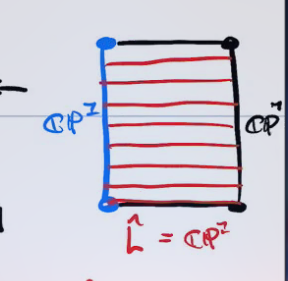 ℂP¹
ℂP¹
L̂ = ℂP¹